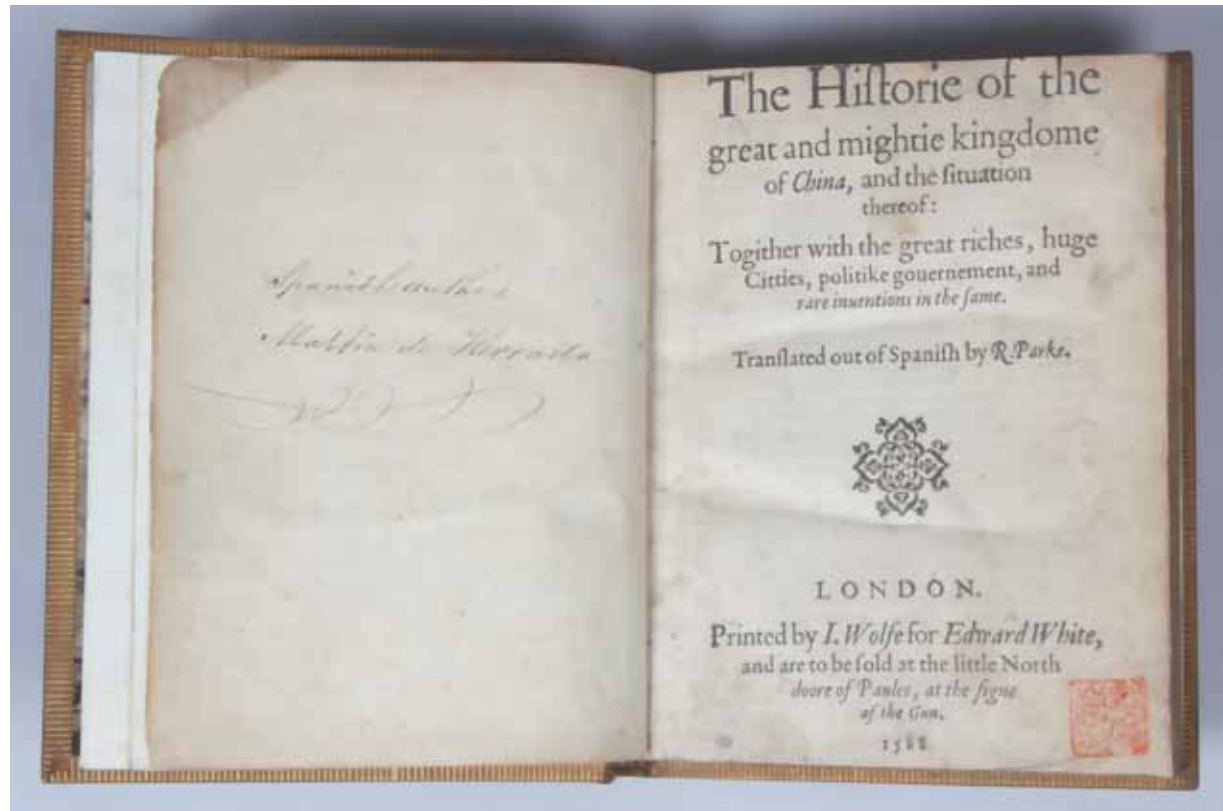 Spanish author
Martin de Herrada
The Hiſtorie of the
great and mightie kingdome
of China, and the ſituation
thereof:
Togither with the great riches, huge
Citties, politike gouernement, and
rare inuentions in the ſame.
Tranſlated out of Spaniſh by R. Parke.
LONDON.
Printed by I. Wolfe for Edward White,
and are to be ſold at the little North
doore of Paules, at the ſigne
of the Gun.
1588